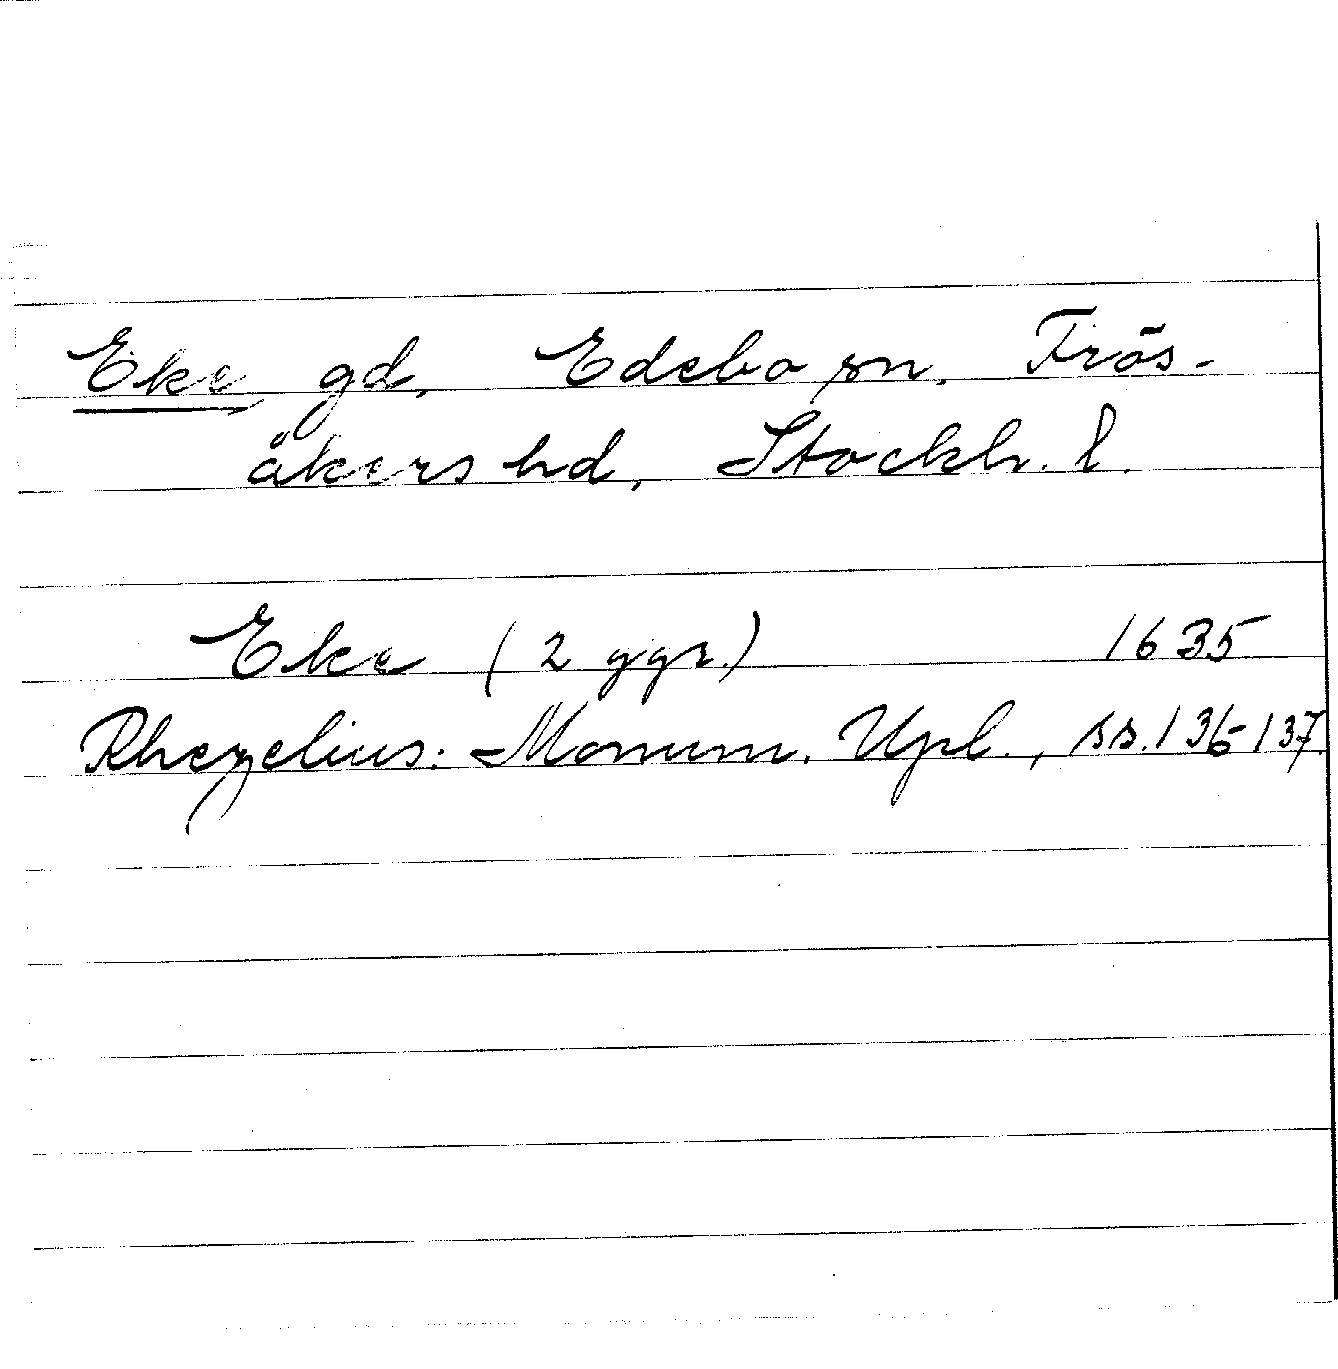 Eke, gd, Edebo sn, Frös-
åkers hd, Stockh. l.
Eke (2 ggr.) 1635
Rhezelius: Monum. Upl., ss. 136-137.